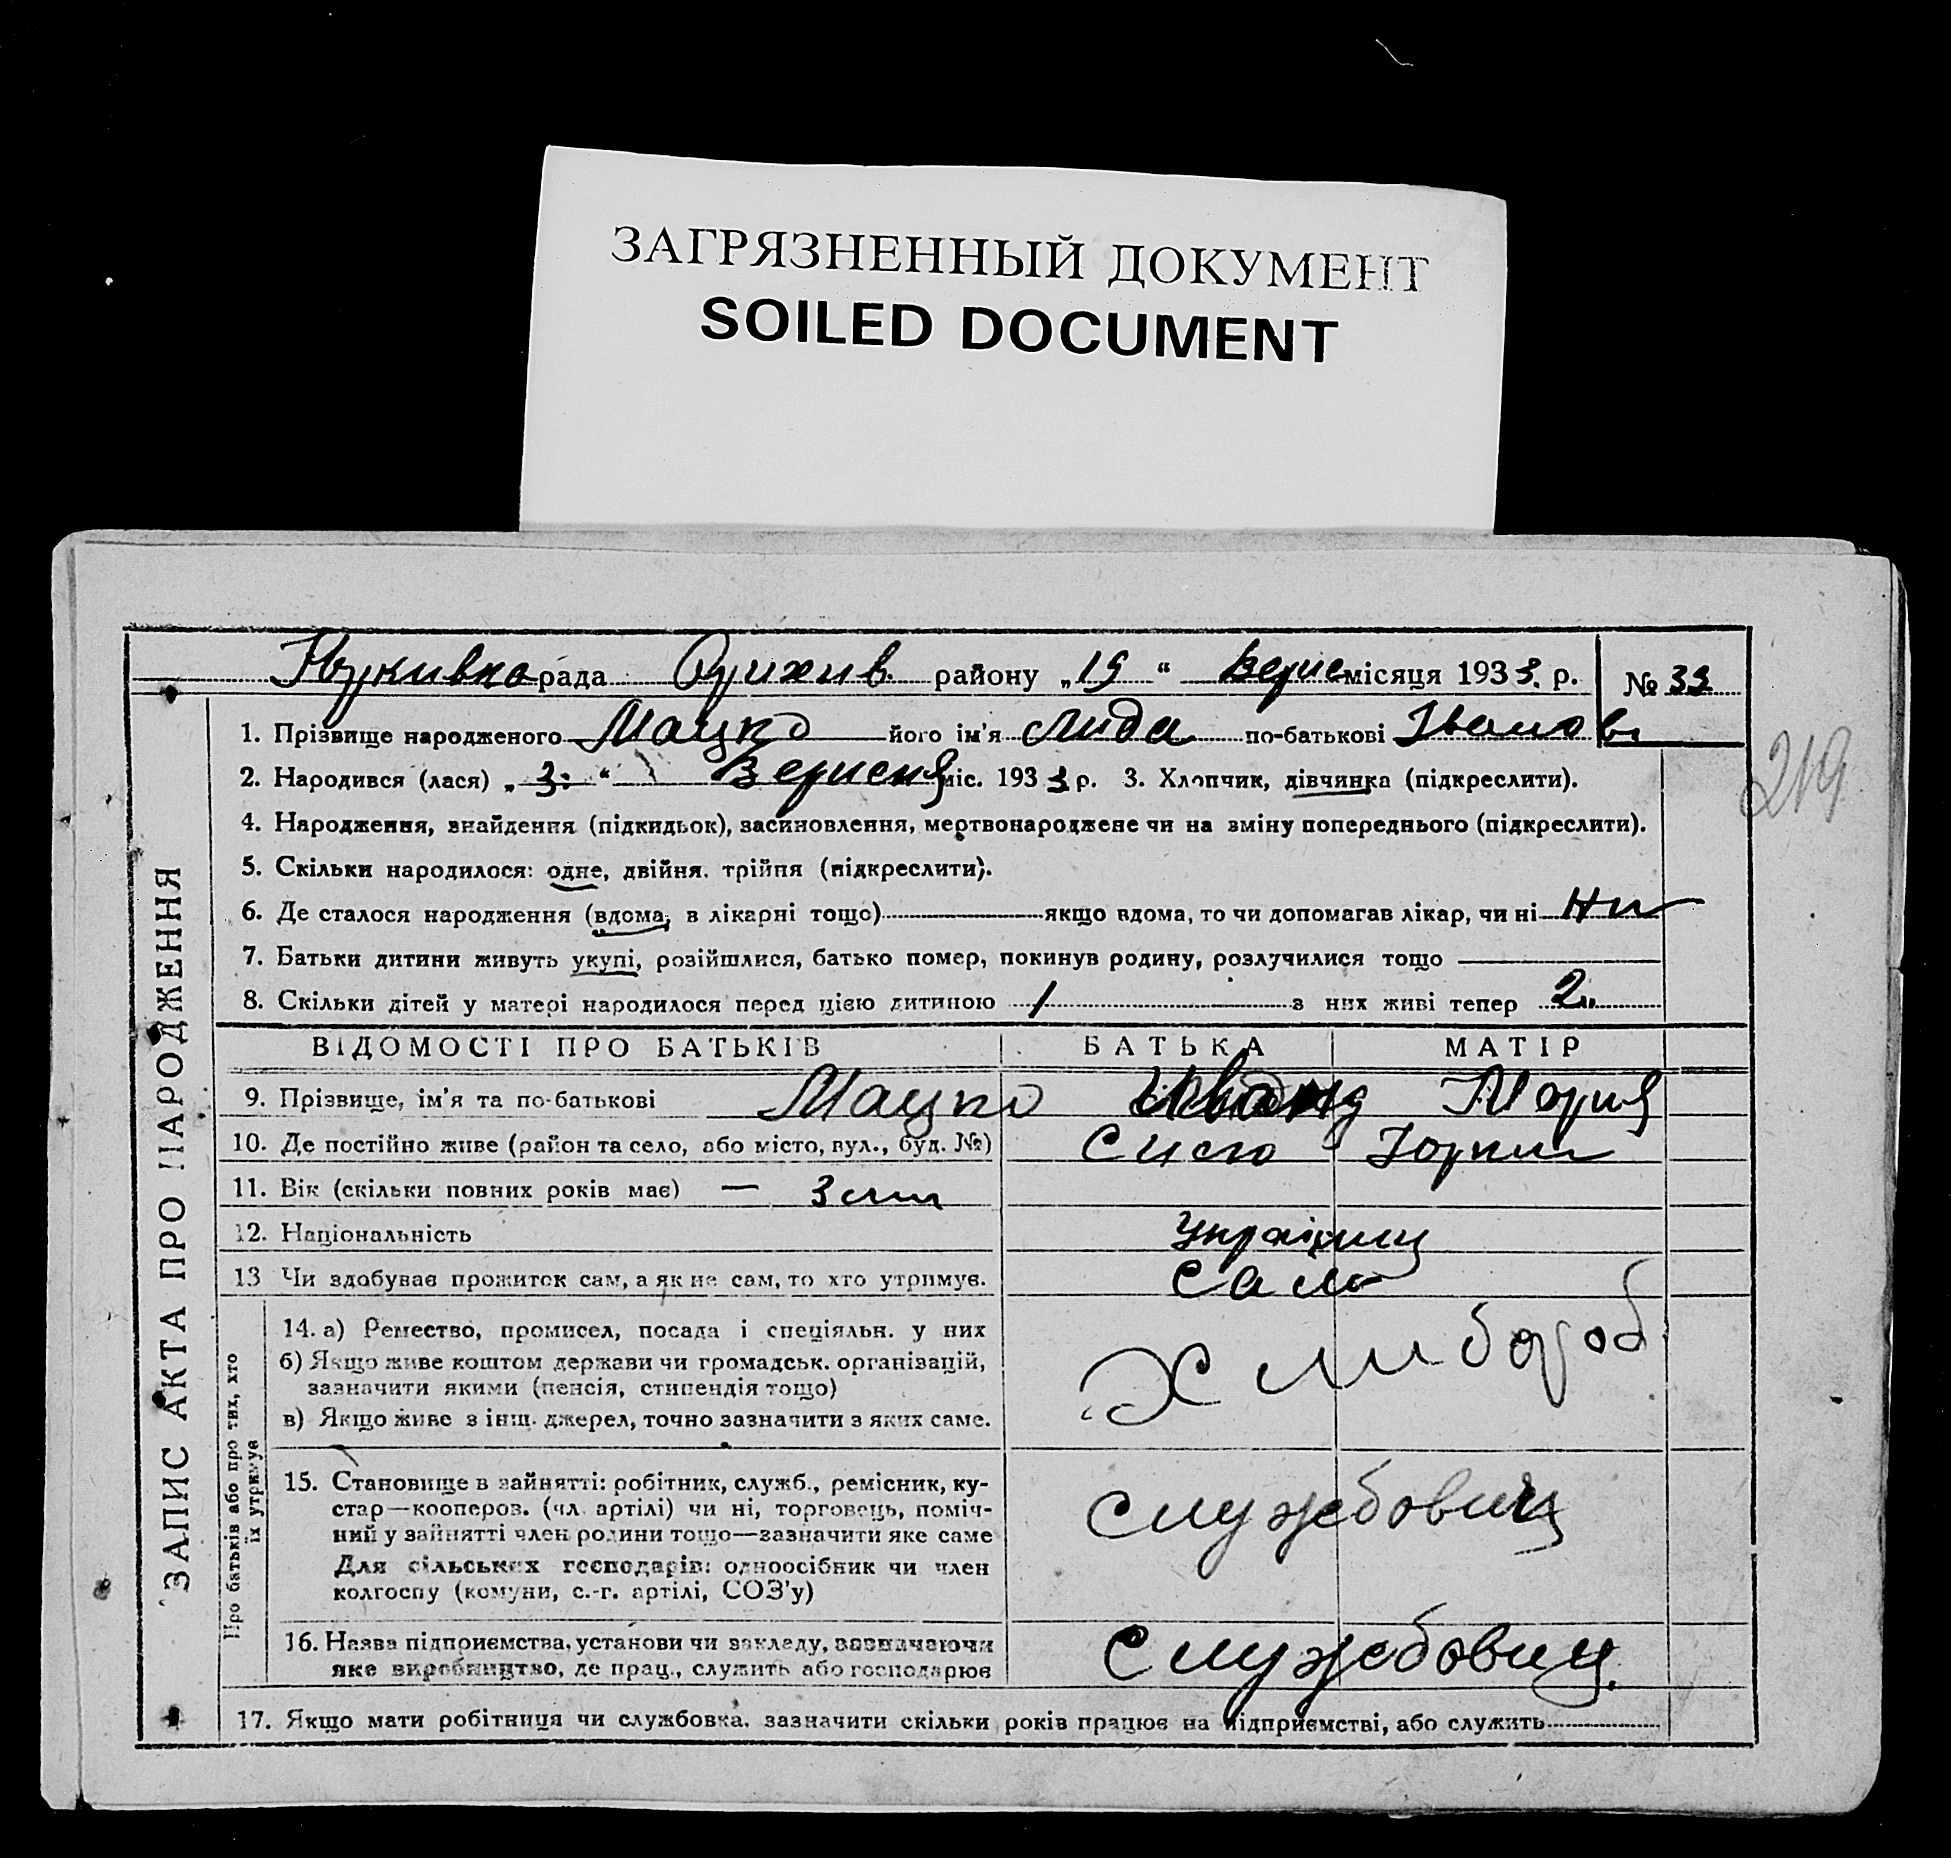 ЗАГРЯЗНЕННЫЙ ДОКУМЕНТ
SOILED DOCUMENT
рада район у „19“ Верес місяця 1933. р. № 33
1. Прізвище народженого Мацко його ім'я Лида по-батькові Іванов
219
2. Народився (лася) „3:“ Вересня міс. 1933 р. 3. Хлопчик, дівчинка (підкреслити).
4. Народження, знайдення (підкидьок), засиновлення, мертвонароджене чи на зміну попереднього (підкреслити).
5. Скільки народилося: одне, двійня. трійня (підкреслити).
6. Де сталося народження (вдома, в лікарні тощо) якщо вдома, то чи допомагав лікар, чи ні Ни
7. Батьки дитини живуть укупі, розійшлися, батько помер, покинув родину, розлучилися тощо
8. Скільки дітей у матері народилося перед цією дитиною 1 з них живі тепер 2
ВІДОМОСТІ ПРО БАТЬКІВ БАТЬКА МАТІР
9. Прізвище, ім'я та по-батькові Мацко Мария
10. Де постійно живе (район та село, або місто, вул., буд. №)
11. Вік (скільки повних років має) —
12. Національність Українец
13 Чи здобуває прожиток сам, а як не сам, то хто утримує. Сам
14. а) Ремество, промисел, посада і спеціяльн. у них
б) Якщо живе коштом держави чи громадськ. організацій,
зазначити якими (пенсія, стипендія тощо)
в) Якщо живе з інш. джерел, точно зазначити з яких саме.
Хлибороб
15. Становище в зайнятті: робітник, служб., ремісник, ку-
стар—коопероз. (чл. артілі) чи ні, торговець, поміч-
ний у зайнятті член родини тощо—зазначити яке саме
Для сільських господарів: одноосібник чи член
колгоспу (комуни, с.-г. артілі, СОЗ'у)
Службовиц
16. Назва підприємства, установи чи закладу, зазначаючи
яке виробництво, де прац., служить або господарює
Службовиц.
17. Якщо мати робітниця чи службовка, зазначити скільки років працює на підприємстві, або служить
ЗАПИС АКТА ПРО НАРОДЖЕННЯ
Про батьків або про тих, хто
їх утримує